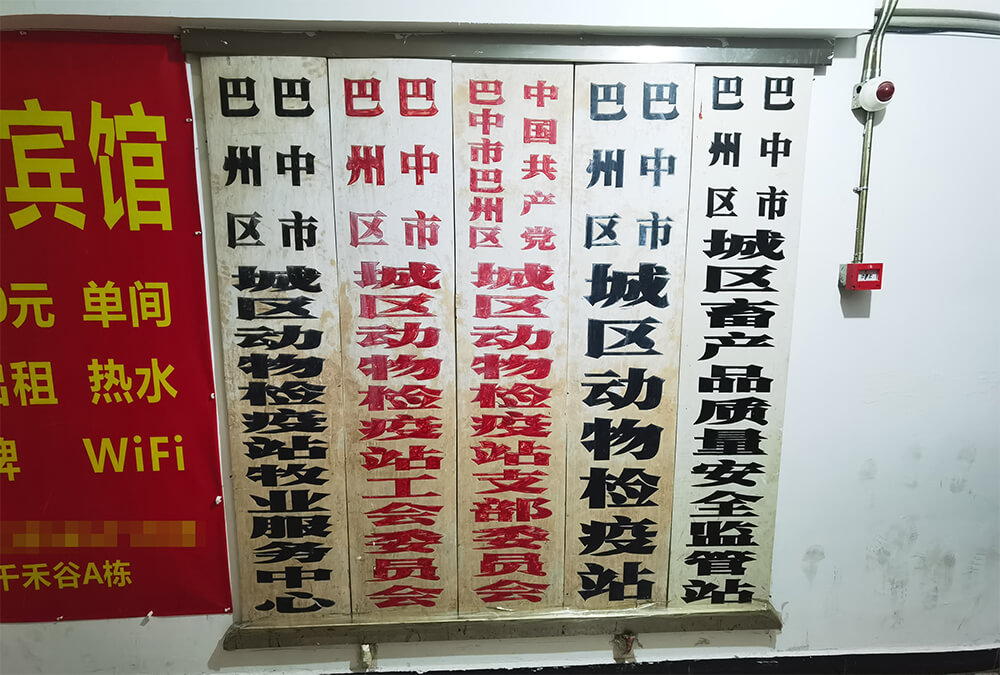 宾馆
元 单间
租 热水
WiFi
禾谷A栋
巴中市
巴州区
城区动物检疫站牧业服务中心
巴中市
巴州区
城区动物检疫站工会委员会
中国共产党
巴中市巴州区
城区动物检疫站支部委员会
巴中市
巴州区
城区动物检疫站
巴中市
巴州区
城区畜产品质量安全监管站